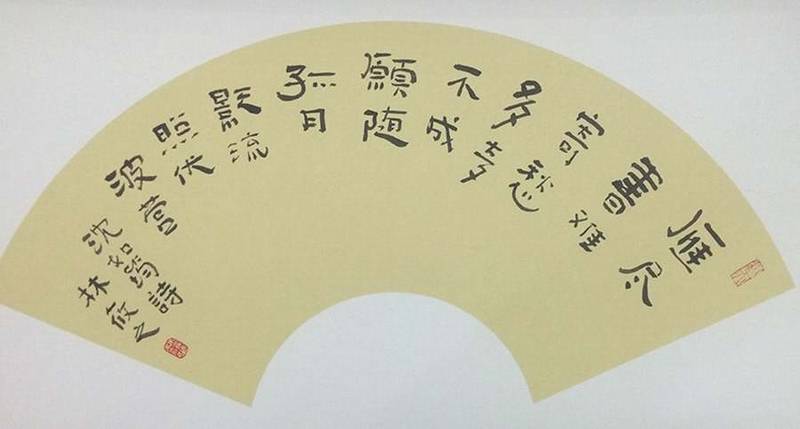 雁尽
書难
寄愁
多梦
不成
願随
孤月
影流
照伏
波营
沈如筠詩
林